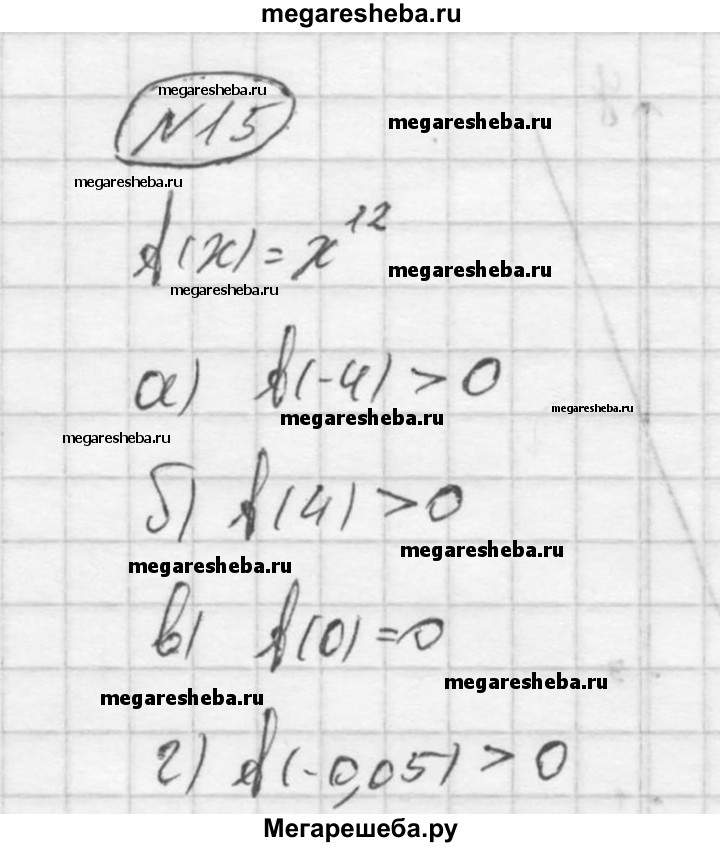 megaresheba.ru
megaresheba.ru
N15
megaresheba.ru
megaresheba.ru
f(x) = x^12
megaresheba.ru
megaresheba.ru
а) f(-4) > 0
megaresheba.ru
megaresheba.ru
megaresheba.ru
б) f(4) > 0
megaresheba.ru
megaresheba.ru
в) f(0) = 0
megaresheba.ru
megaresheba.ru
г) f(-0,05) > 0
Мегарешеба.ру